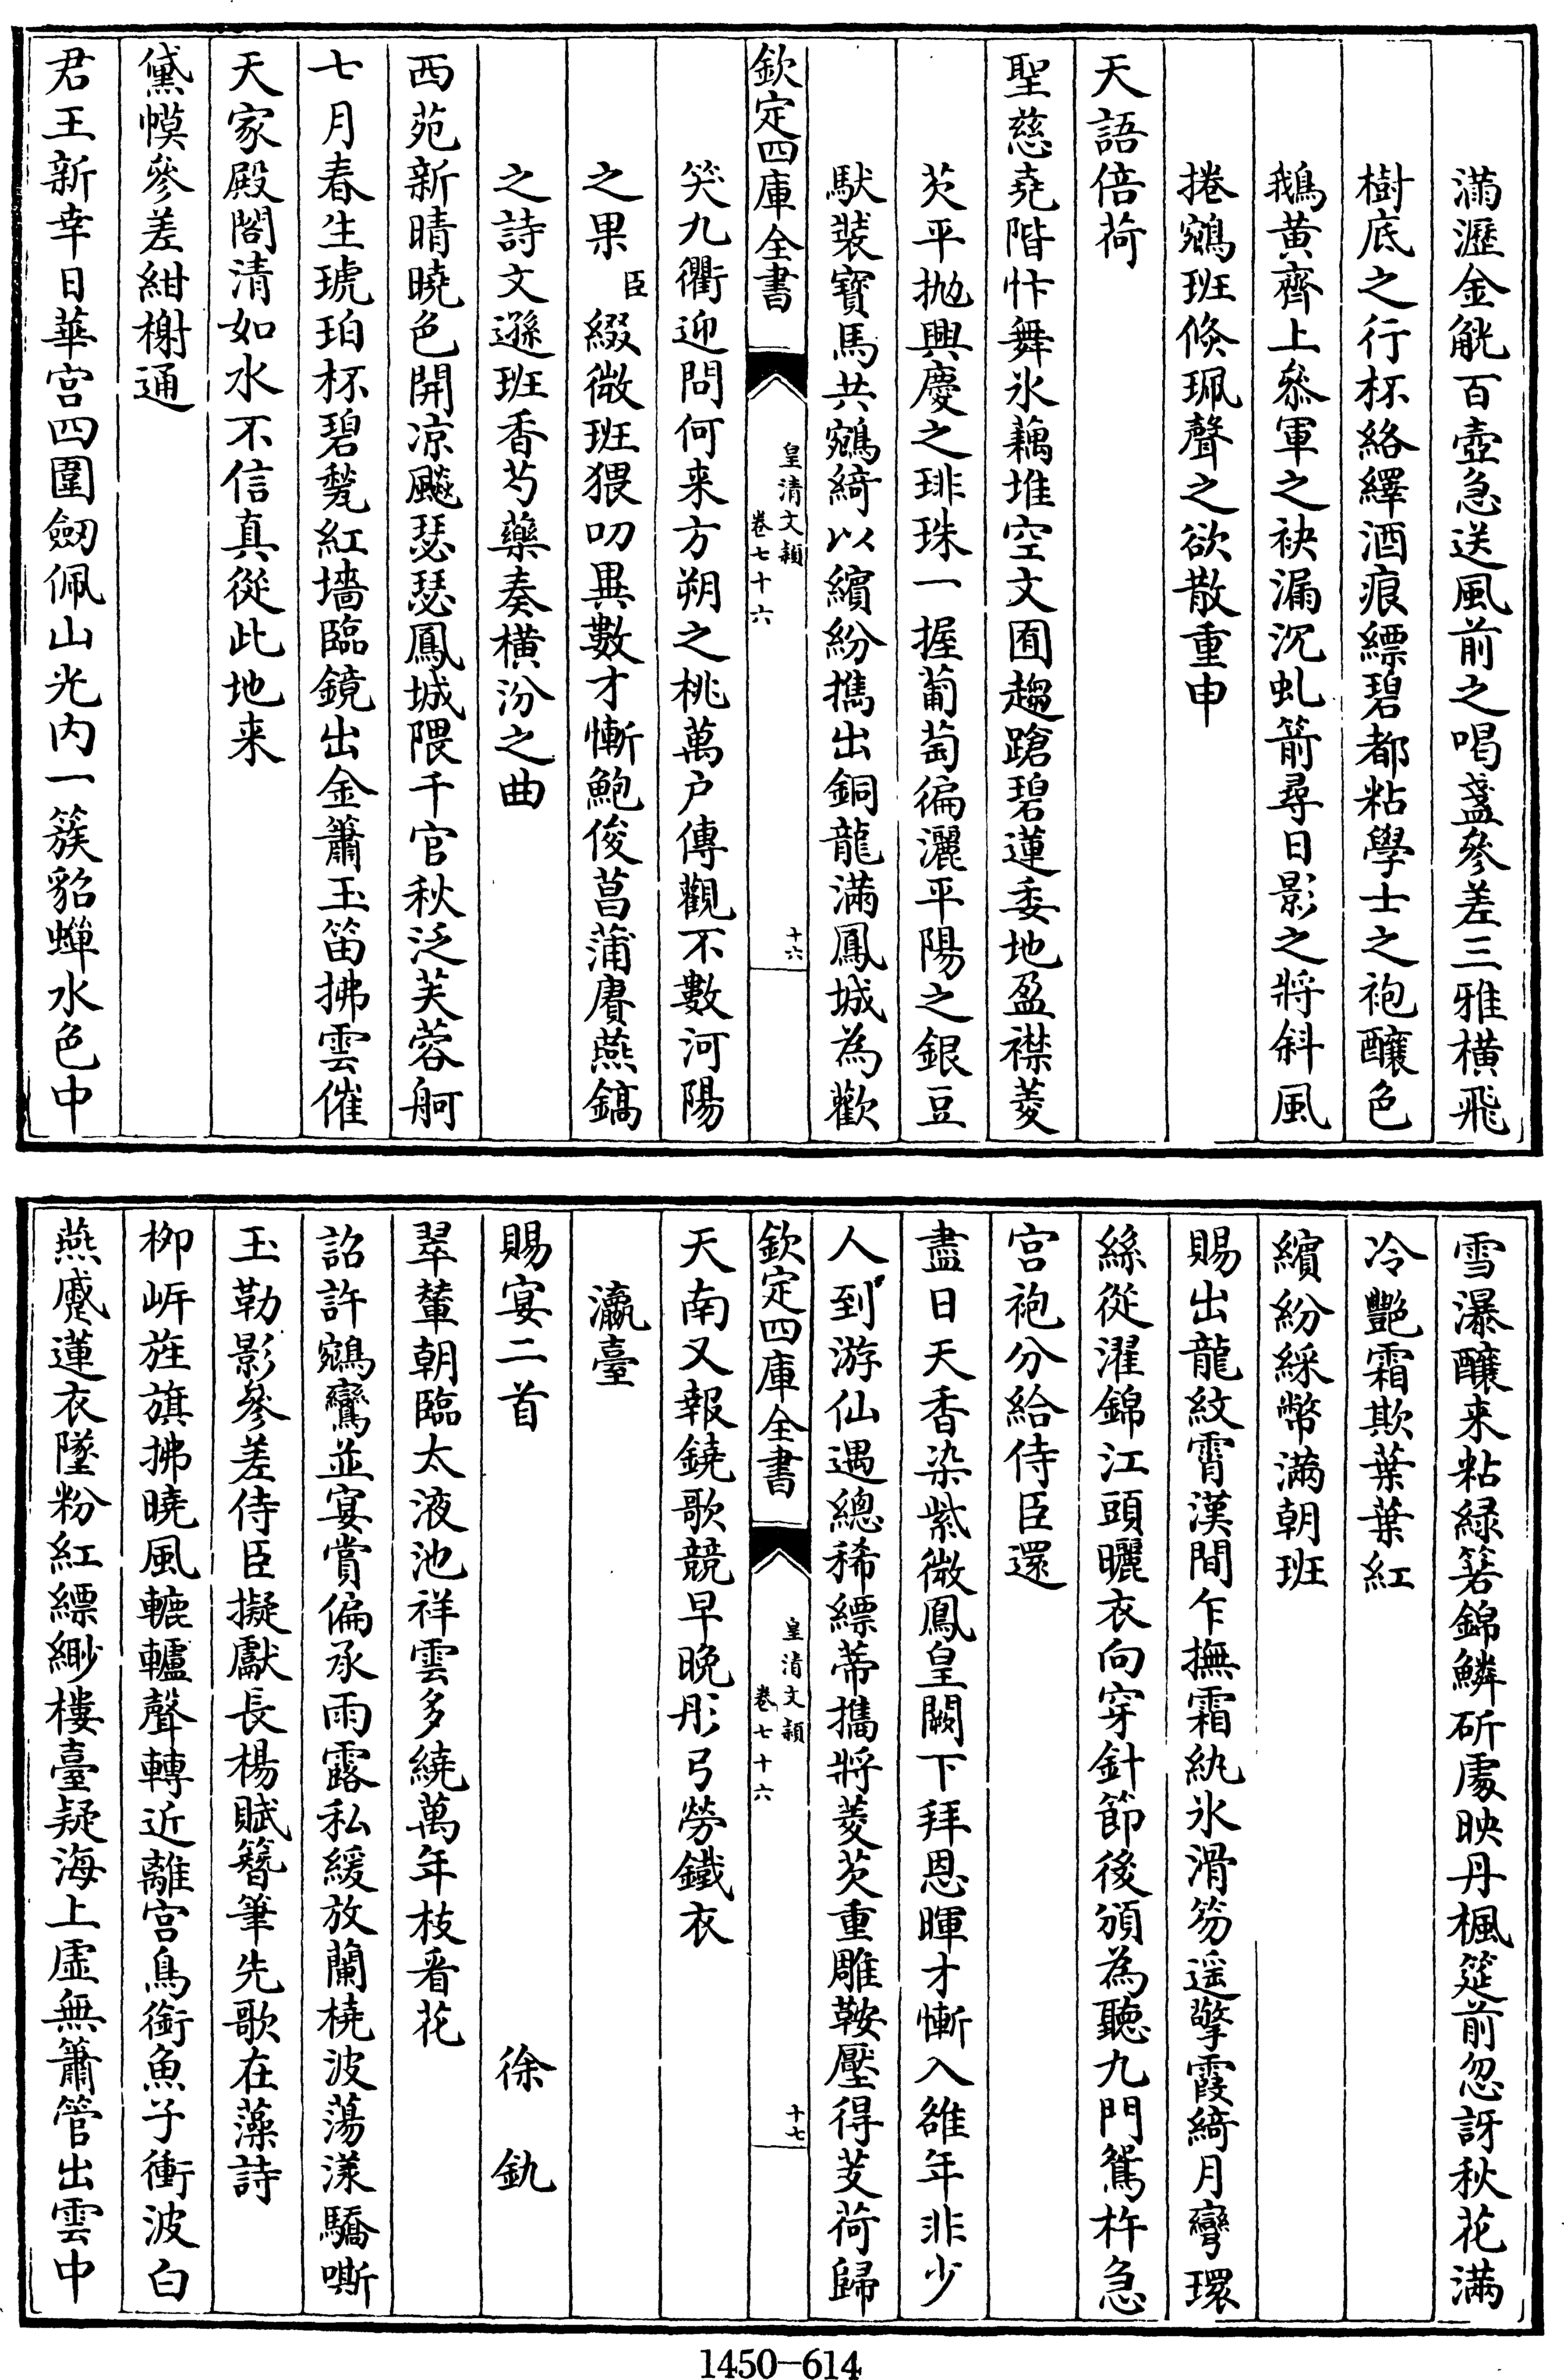 滿瀝金觥百壺急送風前之喝盞參差三雅橫飛
樹底之行杯絡繹酒痕縹碧都粘學士之袍釀色
鵝黃齊上叅軍之袂漏沉虬箭尋日影之將斜風
捲鵷班倐珮聲之欲散重申
天語倍荷
聖慈堯階忭舞氷藕堆空文囿趨蹌碧蓮委地盈襟菱
芡平拋興慶之琲珠一握葡萄徧灑平陽之銀豆
馱裝寶馬共鵷綺以繽紛擕出銅龍滿鳳城為歡
欽定四庫全書
皇清文穎
卷七十六
十六
笑九衢迎問何来方朔之桃萬户傳觀不數河陽
之果臣綴微班猥叨異數才慚鮑俊菖蒲賡燕鎬
之詩文遜班香芍藥奏橫汾之曲
西苑新晴曉色開凉颸瑟瑟鳳城隈千官秋泛芙蓉舸
七月春生琥珀杯碧甃紅墻臨鏡出金簫玉笛拂雲催
天家殿閣清如水不信真從此地来
黛幙參差紺榭通
君王新幸日華宫四圍劒佩山光内一簇貂蟬水色中
雪瀑釀来粘緑箬錦鱗斫處映丹楓筵前忽訝秋花滿
冷艷霜欺葉葉紅
繽紛綵幣滿朝班
賜出龍紋霄漢間乍撫霜紈氷滑笏遥擎霞綺月彎環
絲從濯錦江頭曬衣向穿針節後頒為聽九門鴛杵急
宫袍分給侍臣還
盡日天香染紫微鳳皇闕下拜恩暉才慚入雒年非少
人到游仙遇總稀縹蔕擕將菱芡重雕鞍壓得芰荷歸
欽定四庫全書
皇清文穎
卷七十六
十七
天南又報鐃歌競早晚彤弓勞鐵衣
瀛臺
賜宴二首　徐釚
翠輦朝臨太液池祥雲多繞萬年枝看花
詔許鵷鸞並宴賞偏承雨露私緩放蘭橈波蕩漾驕嘶
玉勒影參差侍臣擬獻長楊賦簪筆先歌在藻詩
柳㟁旌旗拂曉風轆轤聲轉近離宫鳥銜魚子衝波白
燕蹙蓮衣墜粉紅縹緲樓臺疑海上虛無簫管出雲中
1450—614